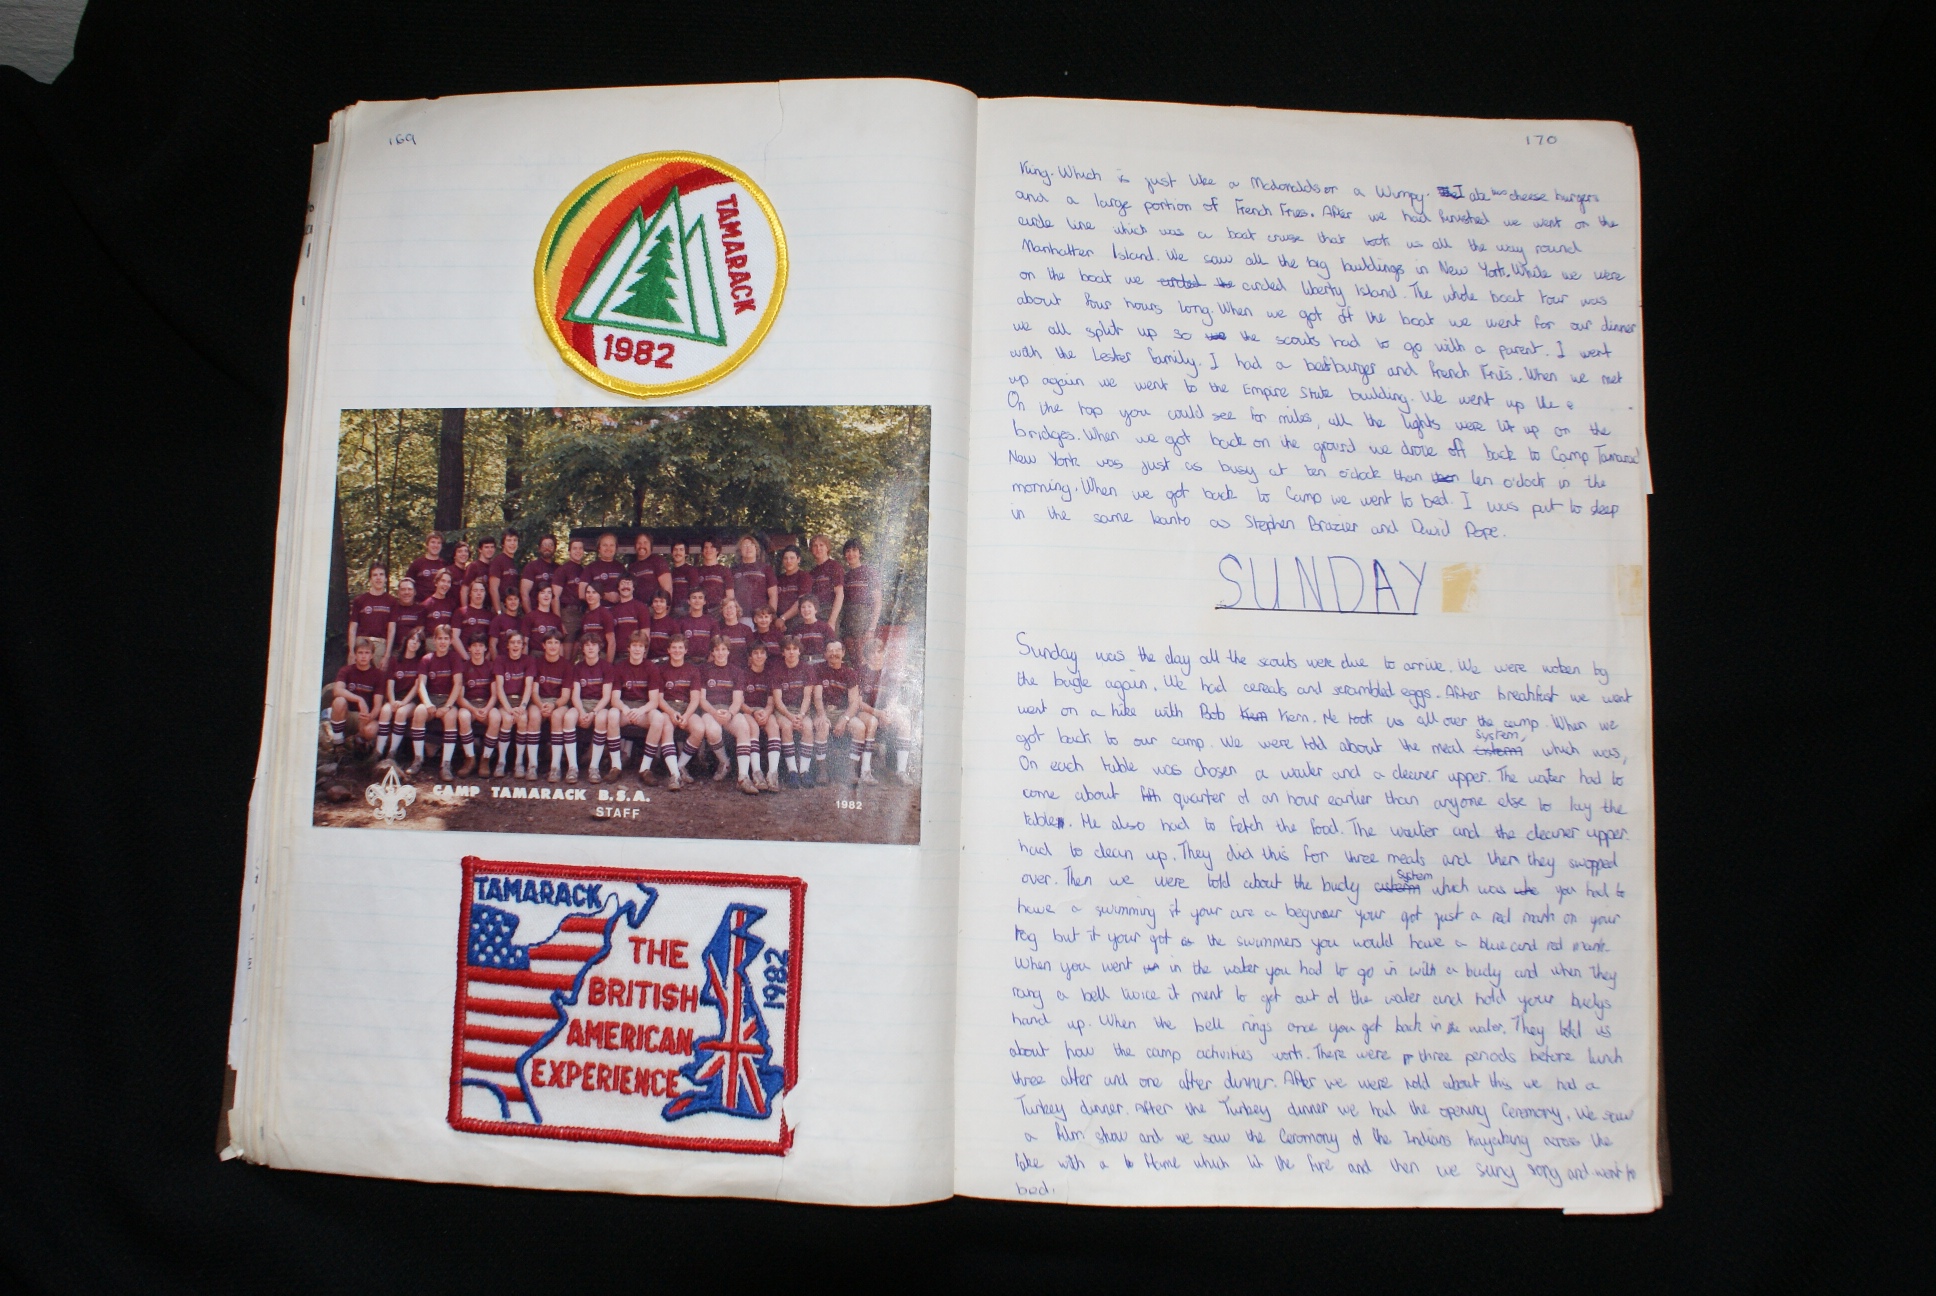 169
TAMARACK
1982
CAMP TAMARACK B.S.A.
STAFF
1982
TAMARACK
THE
BRITISH
AMERICAN
EXPERIENCE
1982
170
King. Which is just like a Mcdonalds or a Wimpy. I ate two cheese burgers
and a large portion of French Fries. After we had finished we went on the
circle line which was a boat cruise that took us all the way round
Manhatten Island. We saw all the big buildings in New York. While we were
on the boat we circled the circled liberty Island. The whole boat tour was
about four hours long. When we got off the boat we went for our dinner
we all split up so the scouts had to go with a parent. I went
with the Lester family. I had a beefburger and French Fries. When we met
up again we went to the Empire State building. We went up the
On the top you could see for miles, all the lights were lit up on the
bridges. When we got back on the ground we drove off back to Camp Tamarack
New York was just as busy at ten o'clock than ten o'clock in the
morning. When we got back to Camp we went to bed. I was put to sleep
in the same as Stephen Brazier and David Pope.
SUNDAY
Sunday was the day all the scouts were due to arrive. We were woken by
the bugle again. We had cereals and scrambled eggs. After breakfast we went
went on a hike with Bob Kern. He took us all over the camp. When we
got back to our camp. We were told about the meal system, which was,
On each table was chosen a waiter and a cleaner upper. The waiter had to
come about quarter of an hour earlier than anyone else to lay the
table. He also had to fetch the food. The waiter and the cleaner upper
had to clean up. They did this for three meals and then they swopped
over. Then we were told about the budy system which was you had to
have a swimming if your are a beginner your got just a red mark on your
tag but if your got the swimmers you would have a blue and red mark.
When you went in the water you had to go in with a budy and when they
rang a bell twice it ment to get out of the water and hold your budys
hand up. When the bell rings once you get back in the water. They told us
about how the camp activities work. There were three periods before lunch
three after and one after dinner. After we were told about this we had a
Turkey dinner. After the Turkey dinner we had the opening Ceremony. We saw
a film show and we saw the Ceremony of the Indians Kayaking across the
lake with a flame which lit the fire and then we sung song and went to
bed.